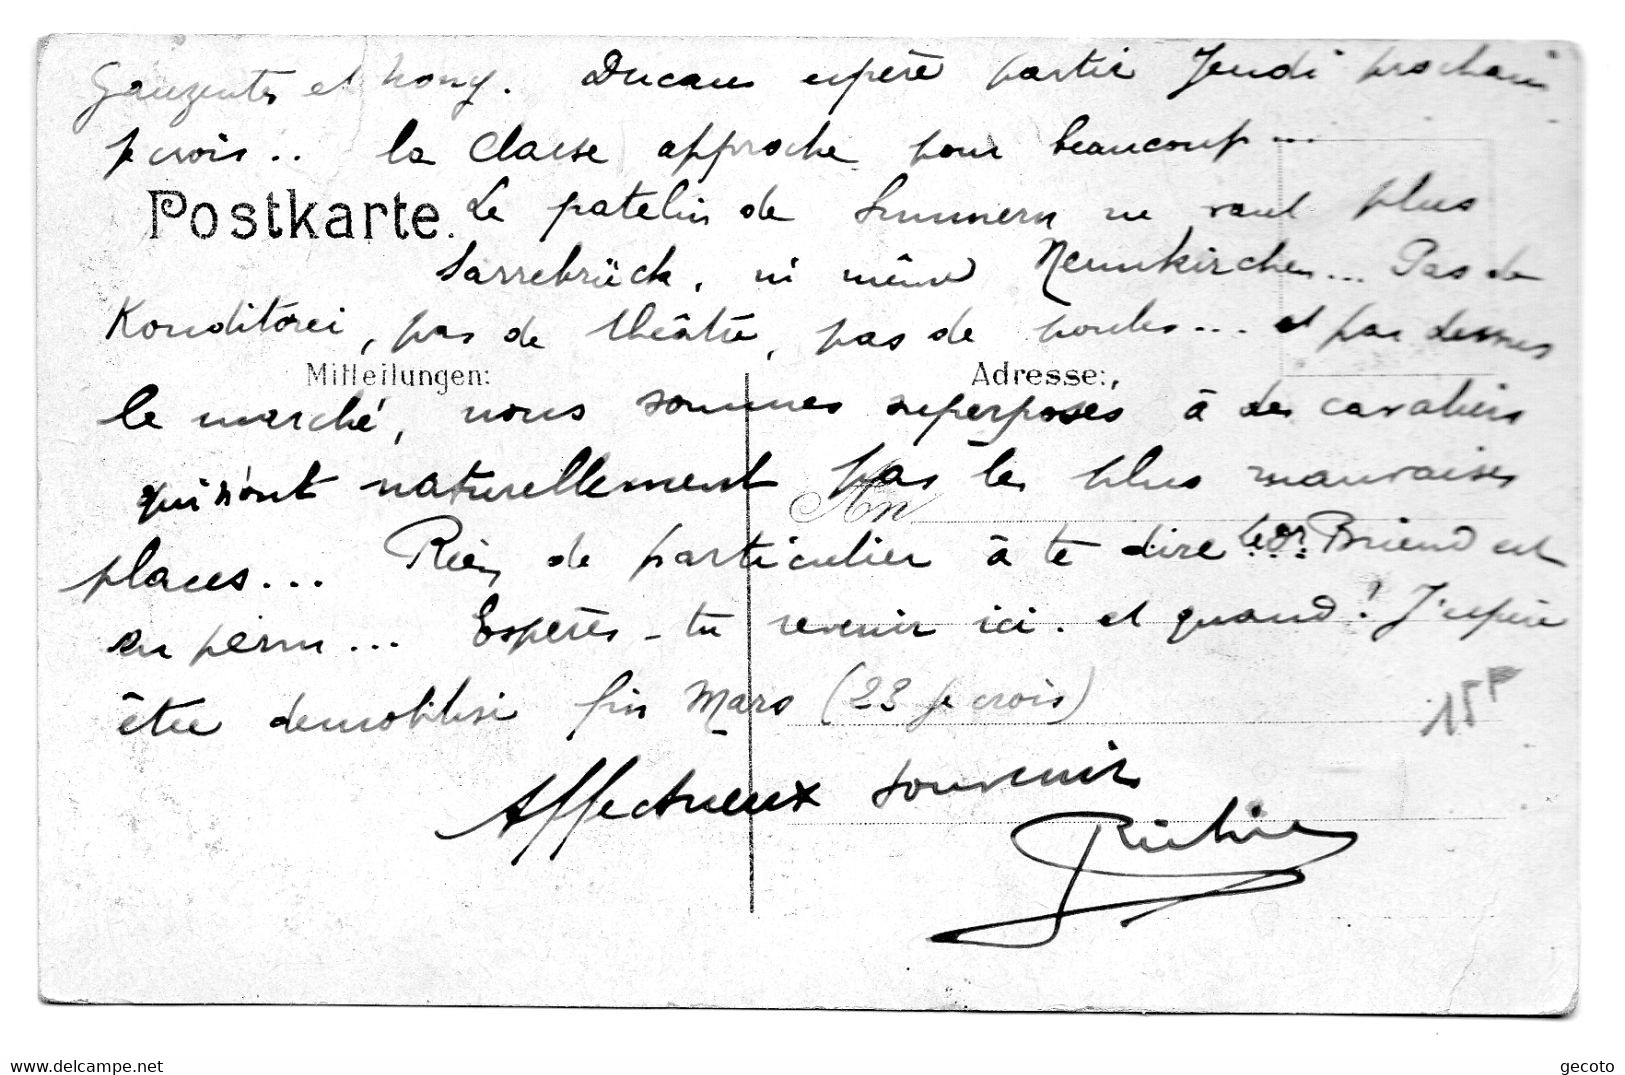 et Ducau espère partir Jeudi prochain
je crois.. la classe approche pour beaucoup...
Postkarte. Le patelin de Simmern ne vaut plus
Sarrebrück, ni même Neunkirchen... Pas de
Konditorei, pas de théâtre, pas de poules... et par dessus
Mitteilungen: Adresse:
le marché, nous sommes superposés à des cavaliers
qui n'ont naturellement pas les plus mauvaises
An
places... Rien de particulier à te dire le Dr Briend est
en perm... Espères-tu revenir ici. et quand? J'espère
être demobilisé fin Mars (23 je crois)
15F
Affectueux souvenir
delcampe.net
gecoto